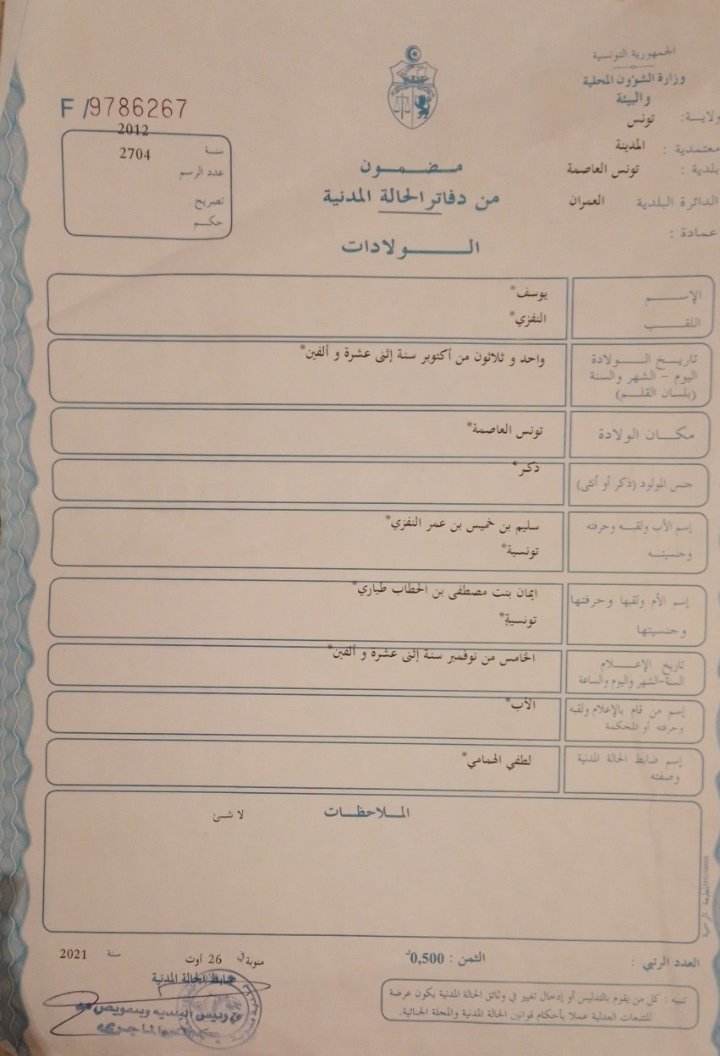 الجمهورية التونسية
وزارة الشؤون المحلية
والبيئة
ولاية: تونس
معتمدية : المدينة
بلدية : تونس العاصمة
الدائرة البلدية العمران
عمادة :
F /9786267
سنة 2012
عدد الرسم 2704
تصريح
حكم
مضمون
من دفاتر الحالة المدنية
الولادات
الإسم يوسف*
اللقب النفزي*
تاريخ الولادة
اليوم – الشهر والسنة
(بلسان القلم)
واحد و ثلاثون من أكتوبر سنة إثنى عشرة و ألفين*
مكان الولادة تونس العاصمة*
جنس المولود (ذكر أو أنثى) ذكر*
إسم الأب ولقبه وحرفته سليم بن خميس بن عمر النفزي*
وجنسيته تونسية*
إسم الأم ولقبها وحرفتها ايمان بنت مصطفى بن الخطاب طياري*
وجنسيتها تونسية*
تاريخ الإعلام
السنة-الشهر واليوم والساعة
الخامس من نوفمبر سنة إثنى عشرة و ألفين*
إسم من قام بالإعلام ولقبه
وحرفته أو المحكمة
الأب*
إسم ضابط الحالة المدنية
وصفته
لطفي الهمامي*
الملاحظات
لا شئ
العدد الرتبي :
الثمن : 0,500د
منوبة في 26 اوت سنة 2021
ضابط الحالة المدنية
رئيس البلدية وبتفويض منه
تنبيه : كل من يقوم بالتدليس أو إدخال تغيير في وثائق الحالة المدنية يكون عرضة
للتتبعات العدلية عملا بأحكام قوانين الحالة المدنية والمجلة الجنائية.